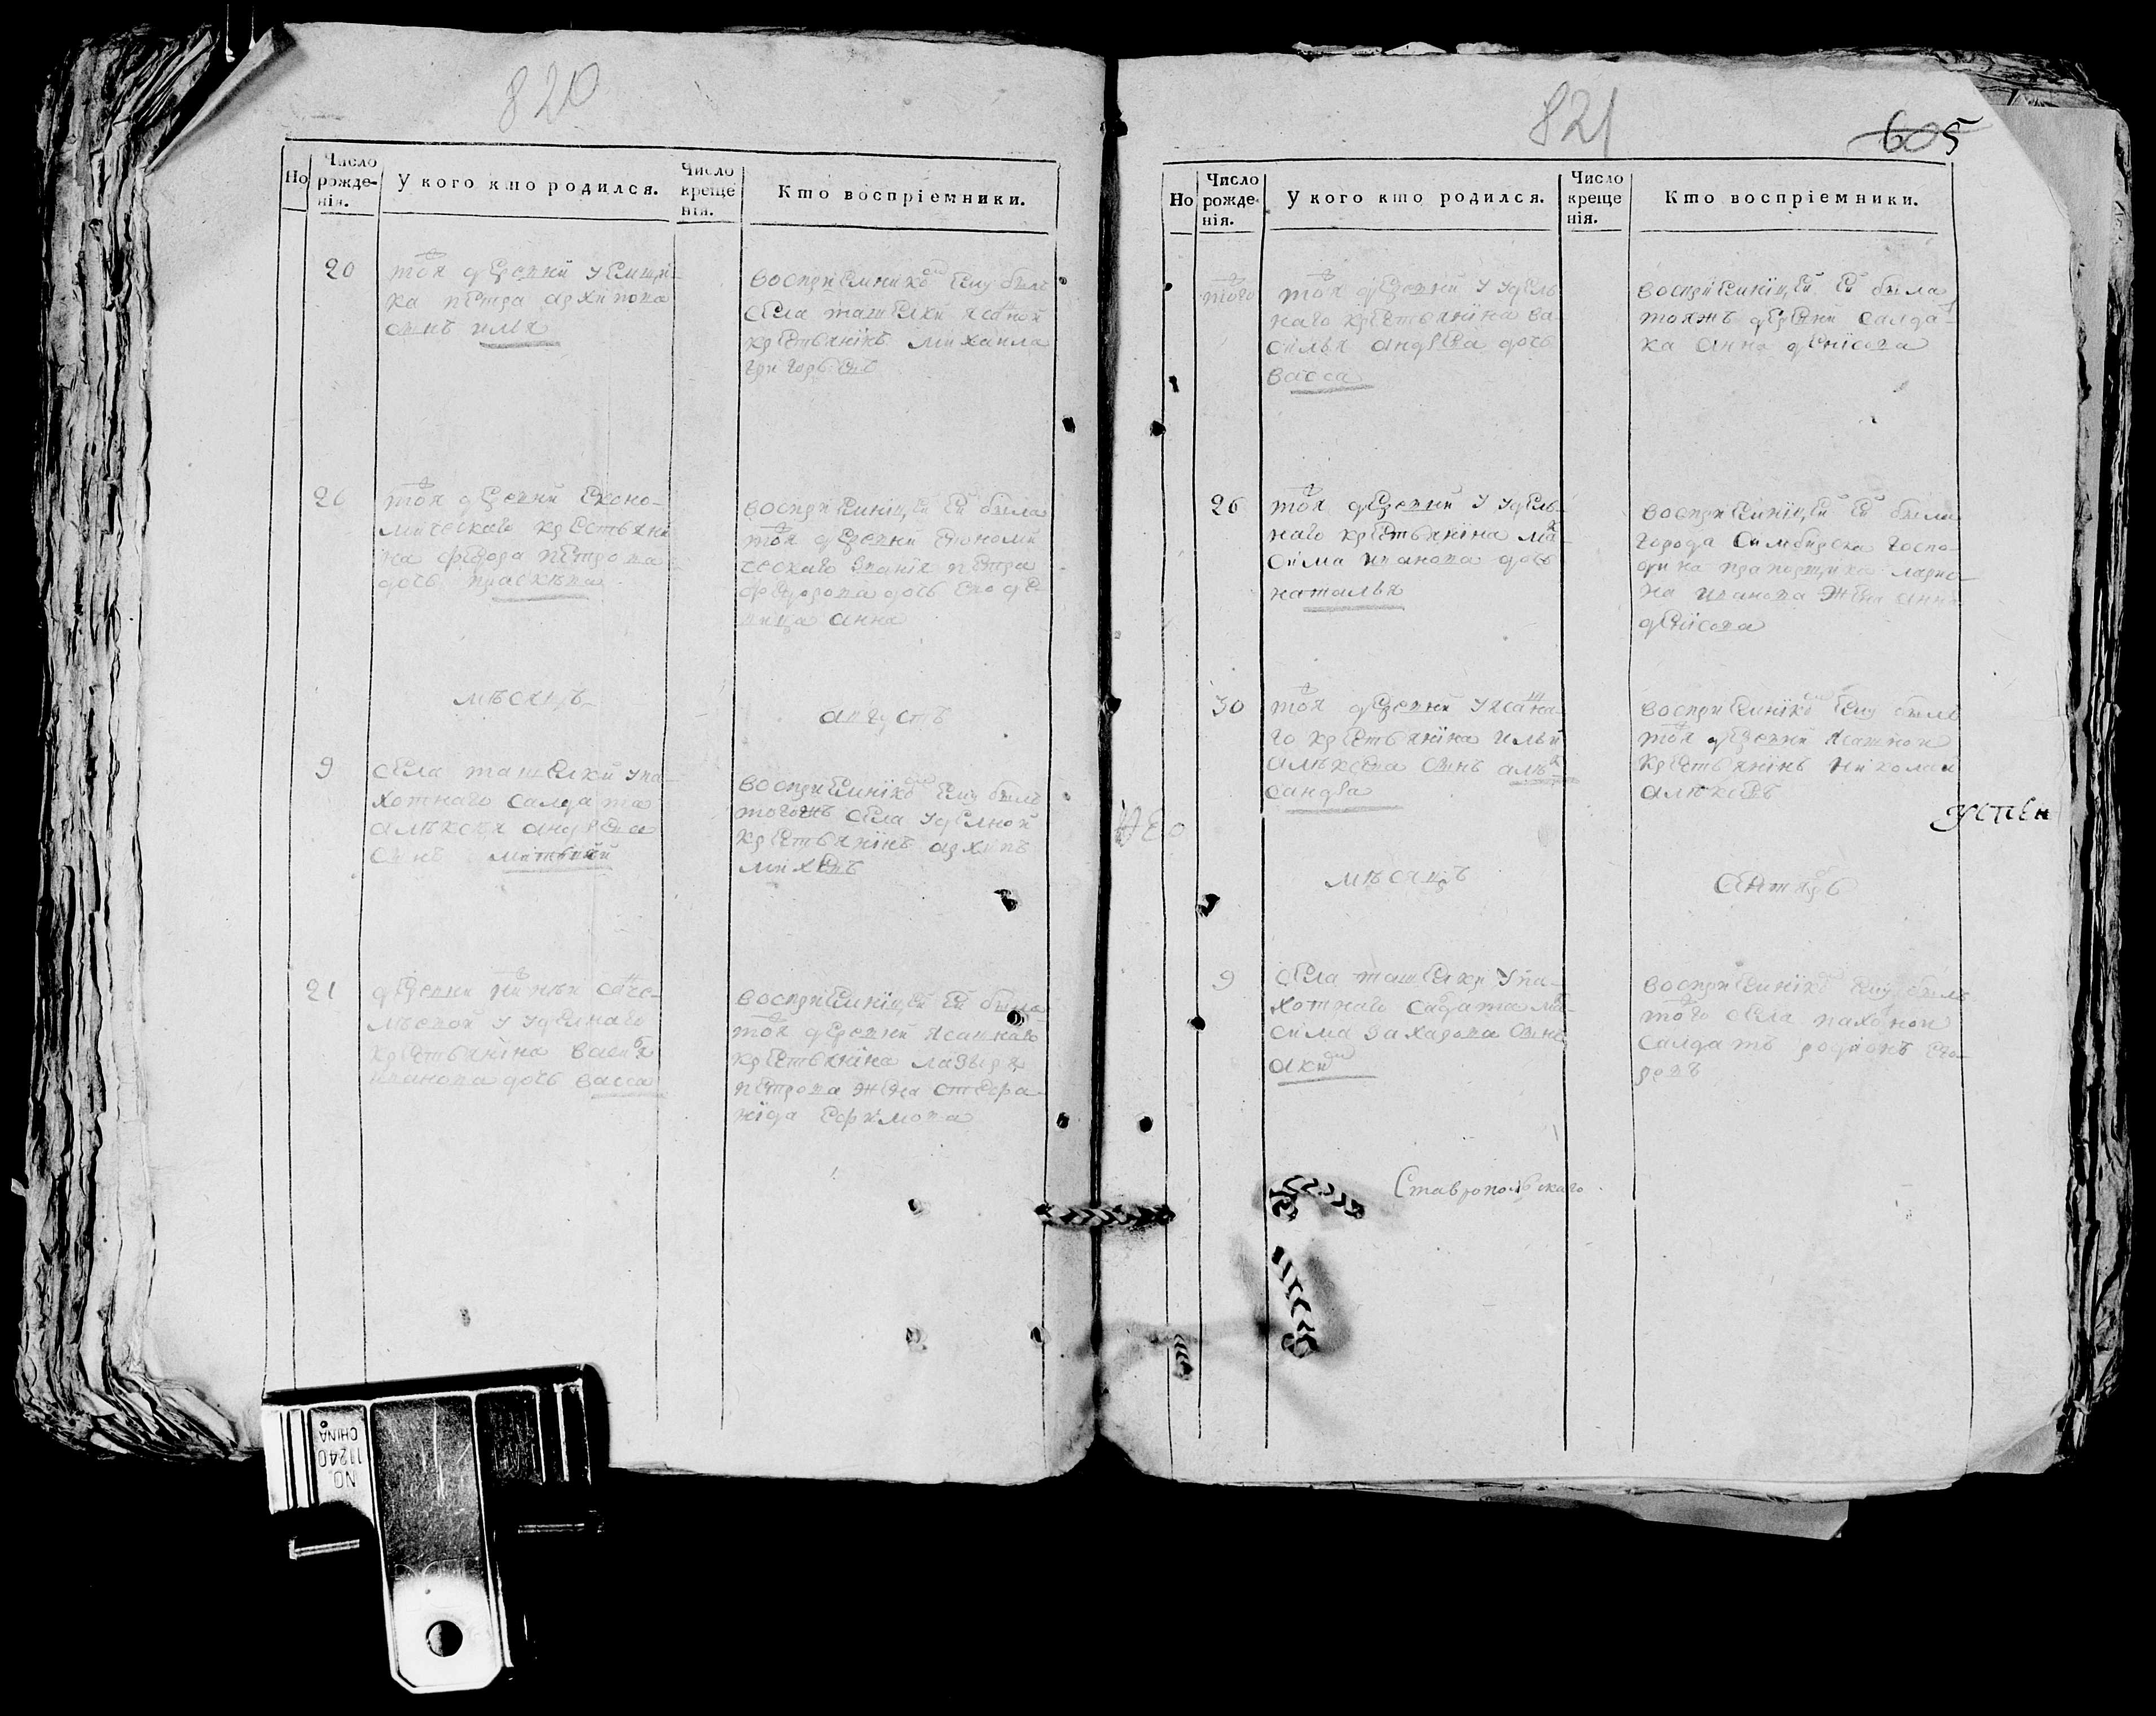 820
Но
Число рожде-нія.
У кого кто родился.
Число креще нія.
Кто воспріемники.
20
тоя деревни у емщи-
ка петра архипова
сынъ илья
воспрiемникомъ ему былъ
села ташелки ясашной
крестьянинъ михаила
григорьевъ
26
тоя деревни еконо-
мическаго крестьяни
на федора петрова
дочь праскева
воспрiемницей ей была
тоя деревни економи
ческаго званiя петра
федорова дочь ево де-
вица анна
месяцъ
августъ
9
села ташелки у па-
хотнаго салдата
алексея андреева
сынъ
воспрiемникомъ ему былъ
тогожъ села уделной
крестьянинъ архипъ
михеевъ
21
деревни нижней сан че-
леевой у уделнаго
крестьянина василья
иванова дочь васса
воспрiемницей ей была
тоя деревни ясашнаго
крестьянина лазыря
петрова жена стефа-
нида ефимова
821
605
Но
Число рожде-нія.
У кого кто родился.
Число креще нія.
Кто воспріемники.
того
тоя деревни у удель
наго крестьянина ва-
силья андреева дочь
васса
воспрiемницей ей была
тояжъ деревни салда-
ка анна денисова
26
тоя деревни у удель-
наго крестьянина мак-
сима иванова дочь
наталья
воспрiемницей ей была
города Симбирска госпо-
дина прапорщика ларио-
на иванова жена анна
денисова
30
тоя деревни у ясашна-
го крестьянина ильи
алексеева сынъ алек-
сандра
воспрiемникомъ ему былъ
тоя деревни ясашной
крестьянинъ николай
алексевъ
успен
месяцъ
сентябрь
9
села ташелки у па-
хотнаго салдата мак-
сима захарова сынъ
аким
воспрiемникомъ ему былъ
того села пахотной
салдатъ родионъ его-
ровъ
Ставропольскаго